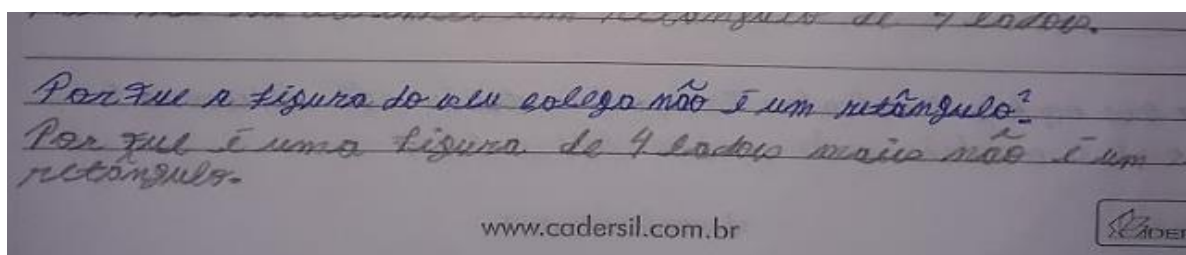 retângulo de 4 lados.
Por que a figura do seu colega não é um retângulo?
Por que é uma figura de 4 lados mais não é um
retângulo.
www.cadersil.com.br